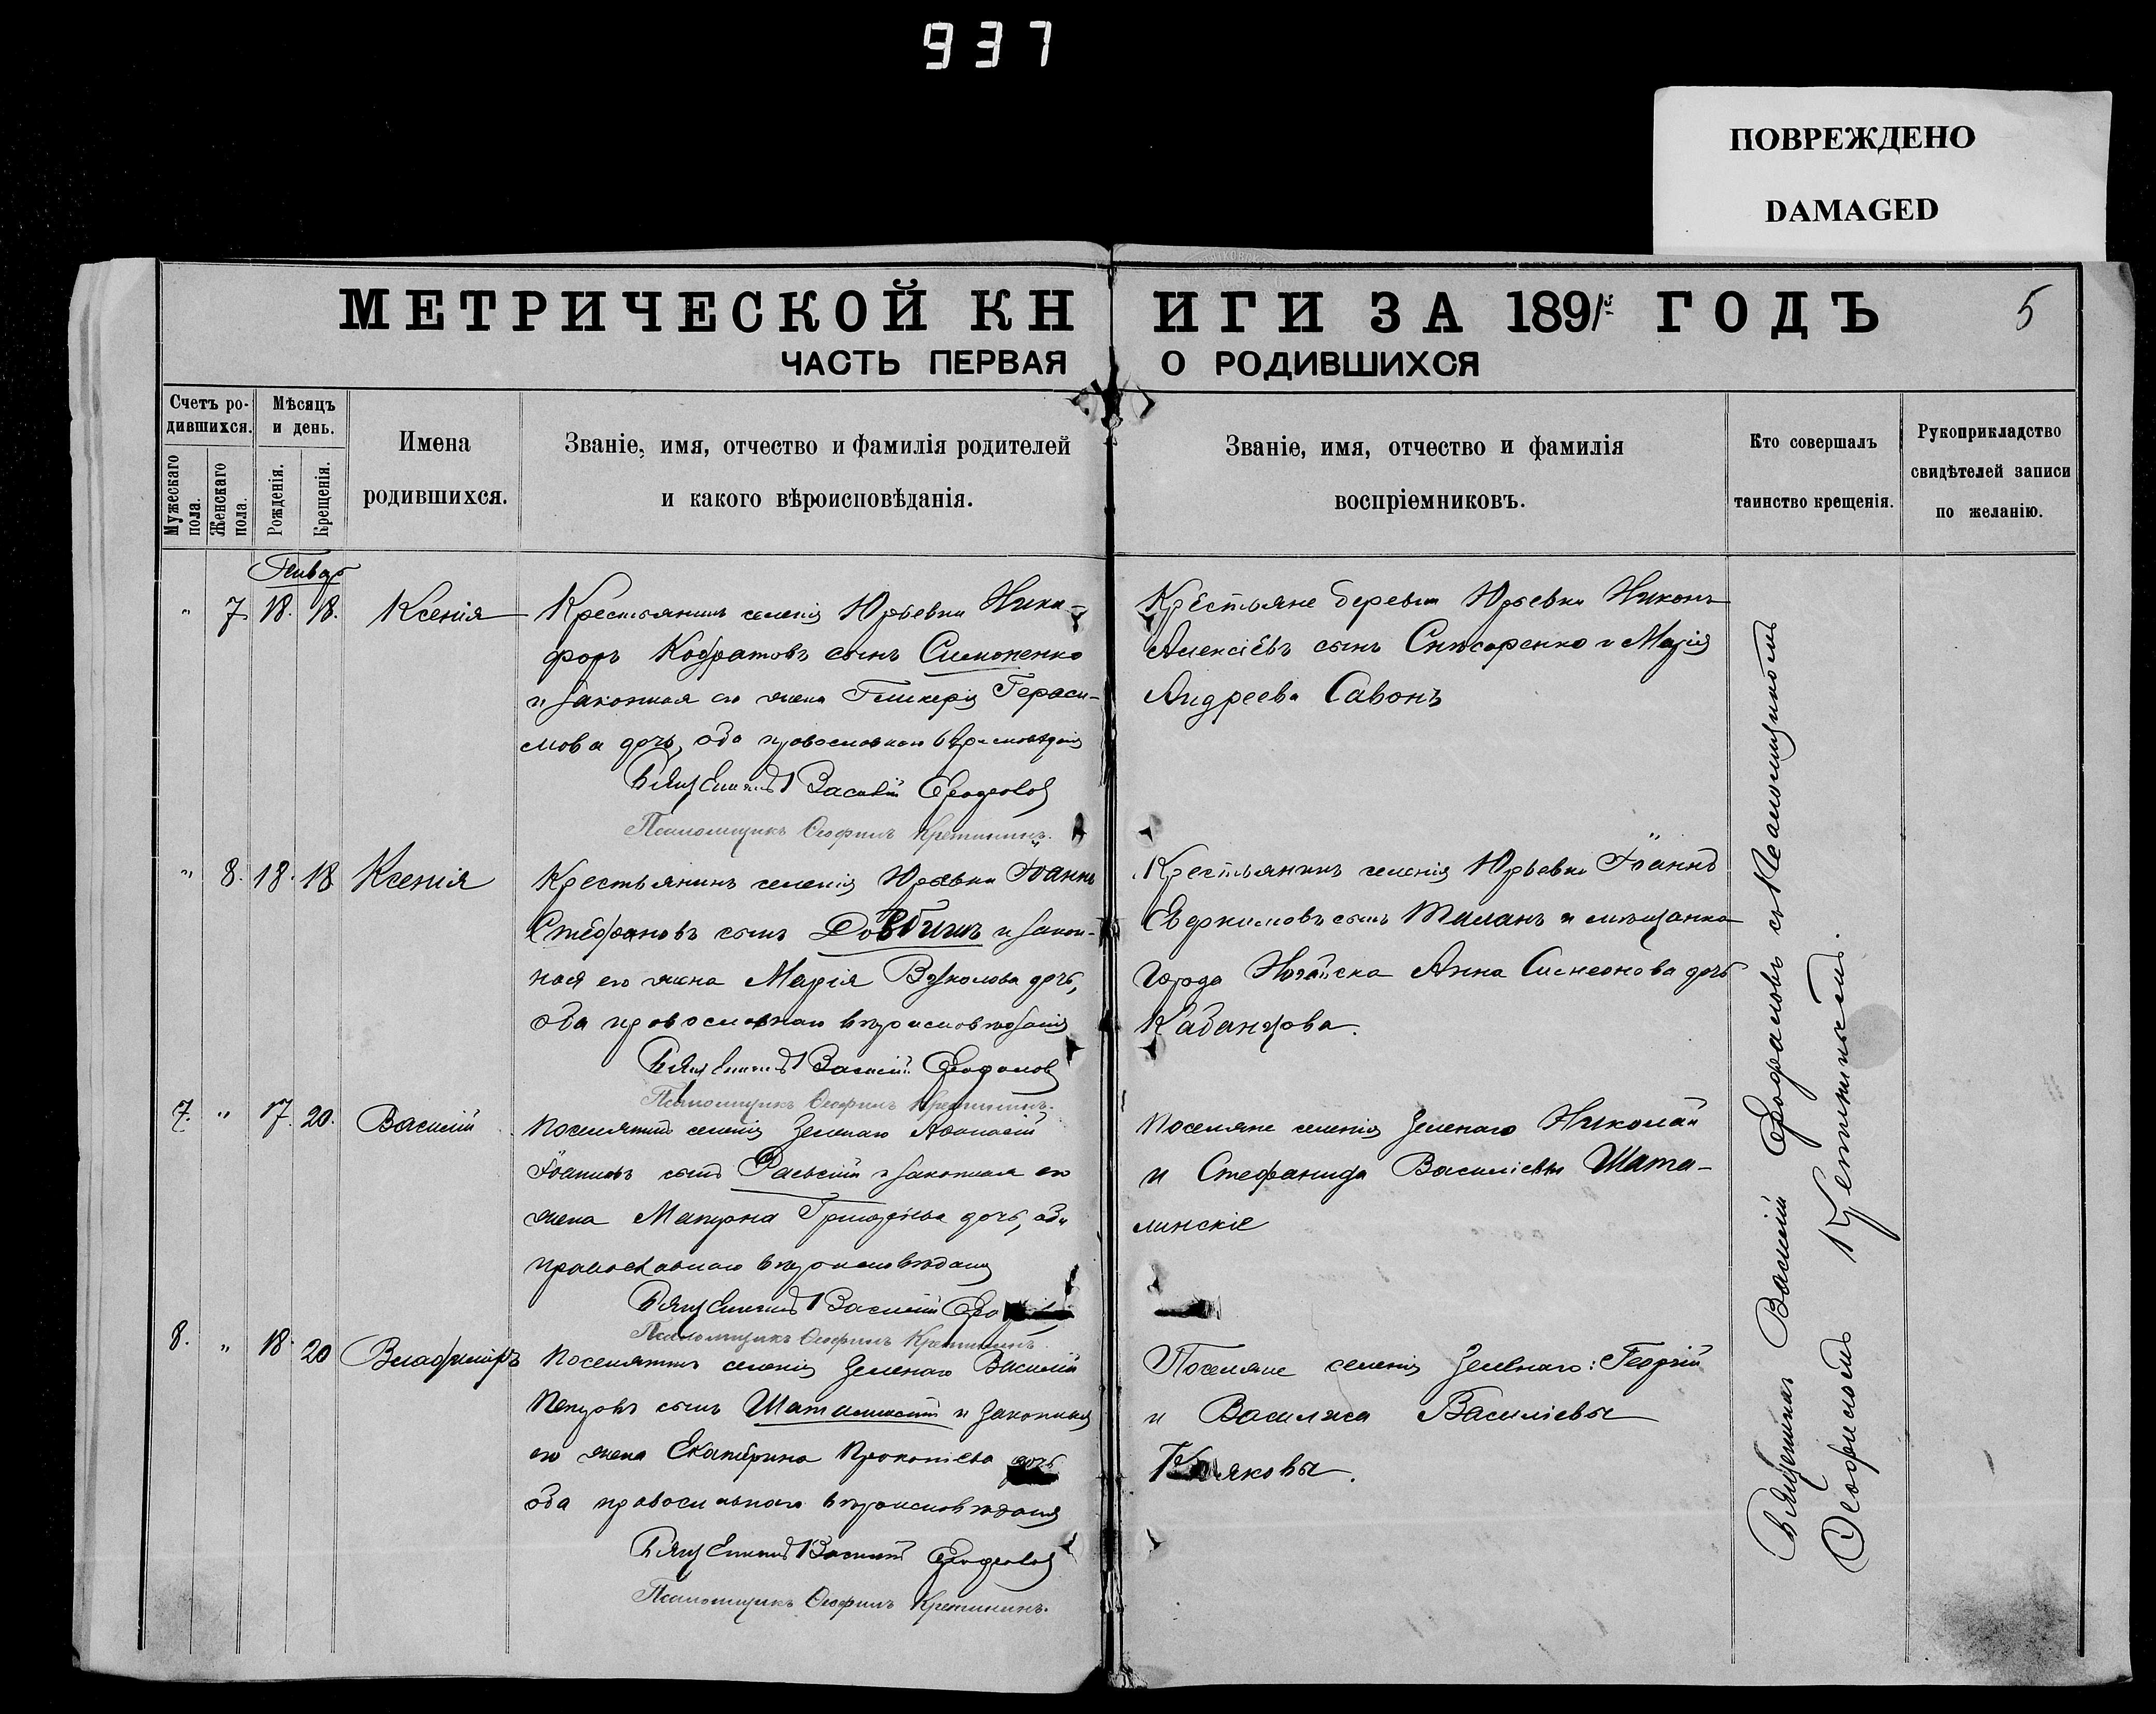 937
ПОВРЕЖДЕНО
DAMAGED
МЕТРИЧЕСКОЙ КНИГИ ЗА 1891й ГОДЪ
5
ЧАСТЬ ПЕРВАЯ О РОДИВШИХСЯ
Счетъ ро-
дившихся.
Мужескаго пола.
Женскаго пола.
Мѣсяцъ
и день.
Рожденія.
Крещенія.
Имена
родившихся.
Званіе, имя, отчество и фамилія родителей
и какого вѣроисповѣданія.
Званіе, имя, отчество и фамилія
воспріемниковъ.
Кто совершалъ
таинство крещенія.
Рукоприкладство
свидѣтелей записи
по желанію.
Январь
" 7 18. 18. Ксенія
Крестьянинъ селенія Юрьевки Ники-
форъ сынъ Симоненко
и законная его жена Гликерія Гераси-
мова дочь, оба православнаго вѣроисповѣданія
Священникъ Василій
Псаломщикъ Ѳеофилъ Кретининъ.
Крестьяне деревни Юрьевки Никонъ
Алексіевъ сынъ Снѣсаренко и Марія
Андреева Савонъ
" 8. 18. 18 Ксенія
Крестьянинъ селенія Юрьевки Іоаннъ
Стефановъ сынъ Довбишъ и закон-
ная его жена Марія Вуколова дочь,
оба православнаго вѣроисповѣданія
Священникъ Василій
Псаломщикъ Ѳеофилъ Кретининъ.
Крестьянинъ селенія Юрьевки Іоаннъ
Евдокимовъ сынъ и мѣщанка
города Ногайска Анна Симеонова дочь
7. " 17. 20. Василій
Поселянинъ селенія Зеленаго Аѳанасій
Іоанновъ сынъ Раевскій и законная его
жена Матрона Григорьева дочь, оба
православнаго вѣроисповѣданія
Священникъ Василій
Псаломщикъ Ѳеофилъ Кретининъ.
Поселяне селенія Зеленаго Николай
и Стефанида Василіевы Шата-
линскіе
8. " 18. 20 Владиміръ
Поселянинъ селенія Зеленаго Василій
Петровъ сынъ Шаталинскій и законная
его жена Екатерина Прокопіева дочь
оба православнаго вѣроисповѣданія
Священникъ Василій
Псаломщикъ Ѳеофилъ Кретининъ.
Поселяне селенія Зеленаго: Георгій
и Василиса Василіевы
Священникъ Василій съ Псаломщикомъ
Ѳеофиломъ Кретининымъ.